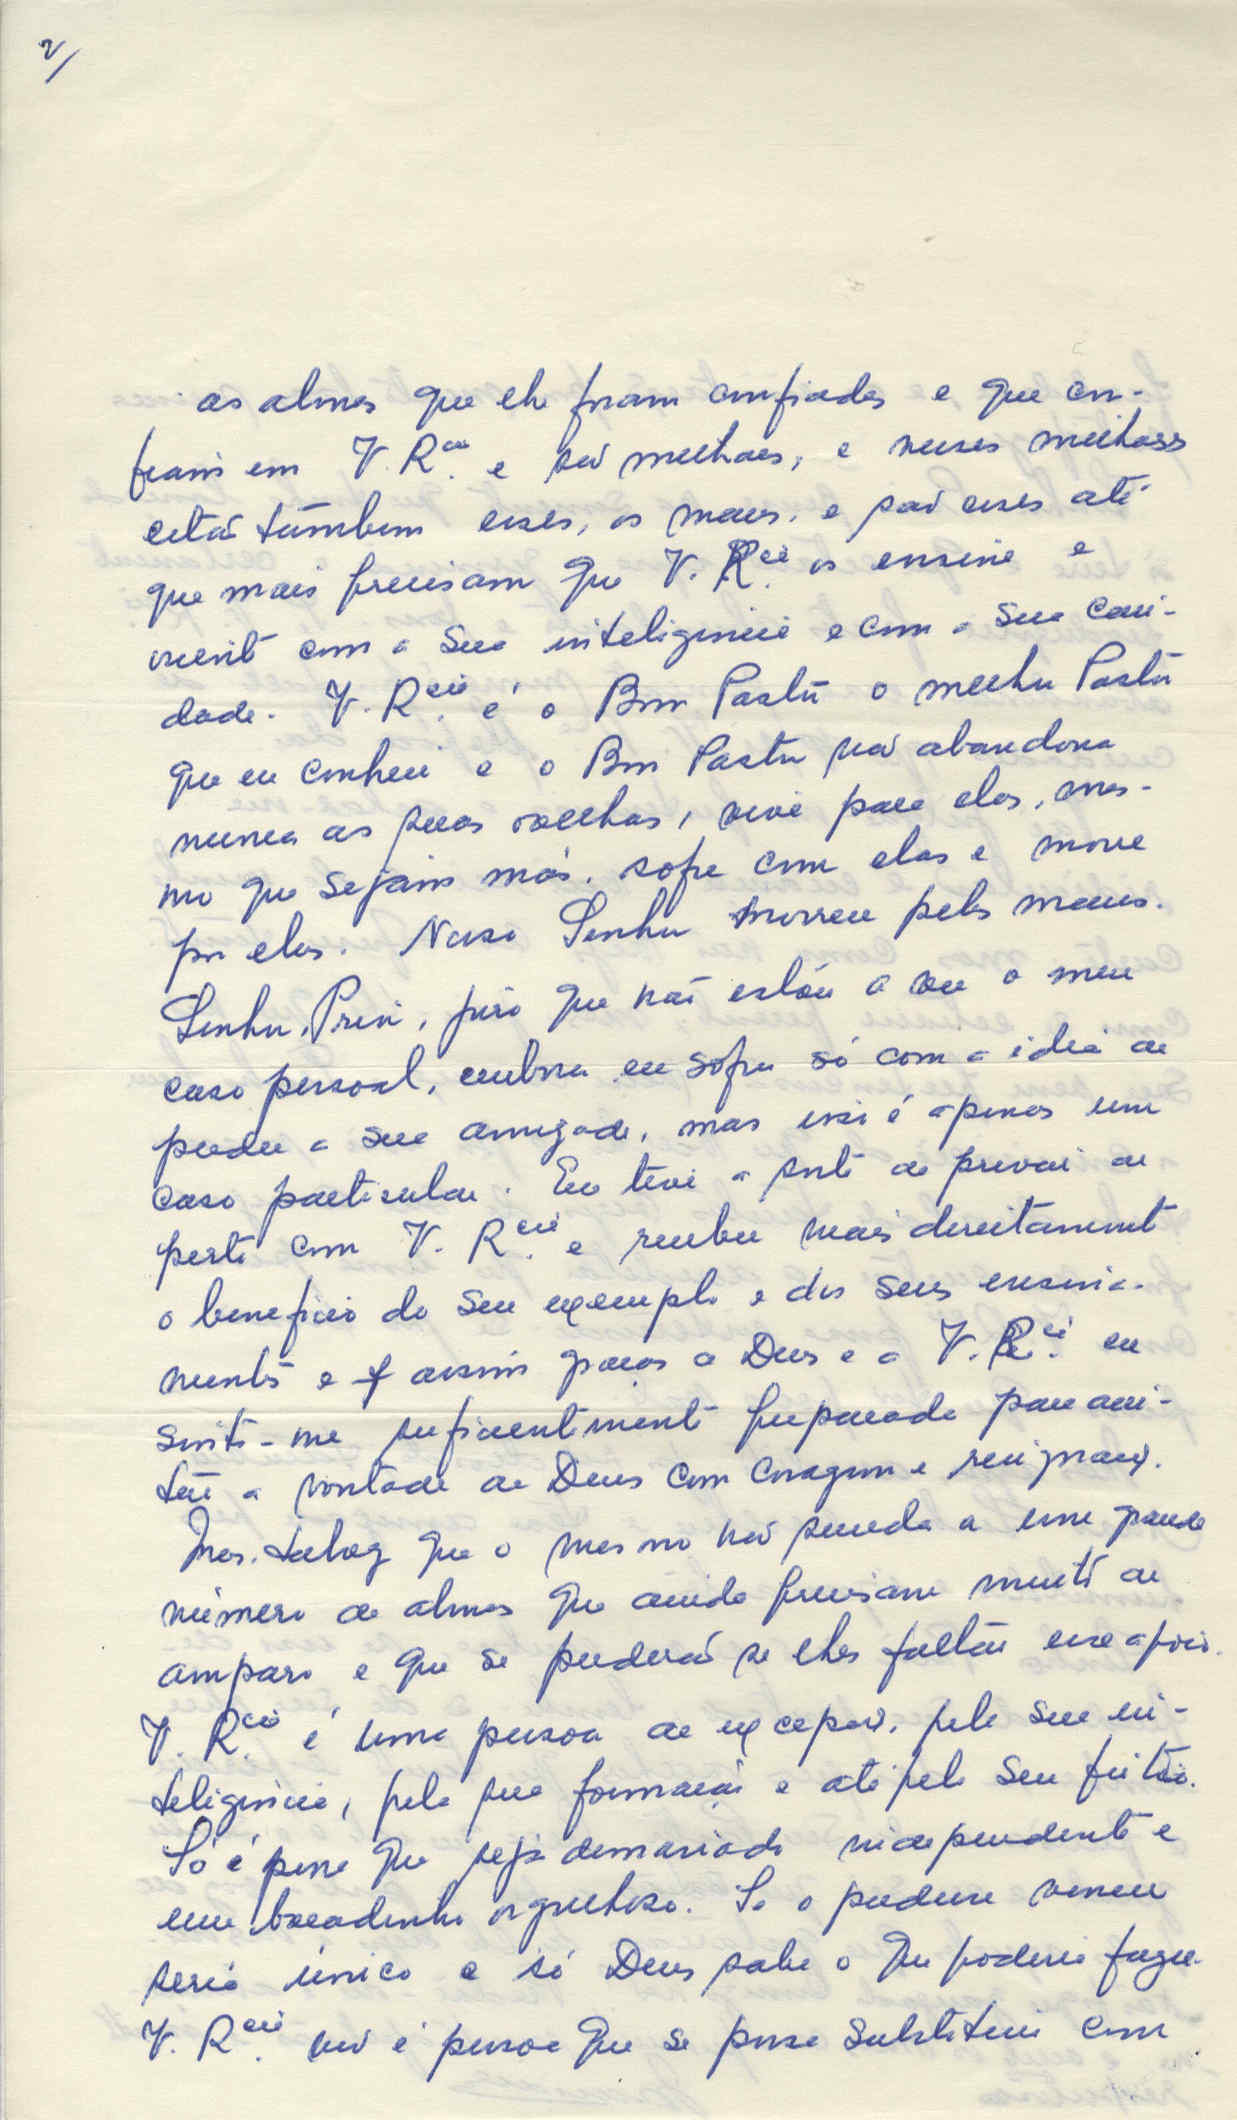 2/
as almas que lhe foram confiadas e que con-
fiam em V. R.cia e são milhares, e nesses milhares
está também esses, os maus, e são esses até
que mais precisam que V. R.cia os ensine e
oriente com a sua inteligencia e com a sua cari-
dade. V. R.cia é o Bom Pastor o melhor Pastor
que eu conheci e o Bom Pastor não abandona
nunca as suas ovelhas, vive para elas, mes-
mo que sejam más, sofre com elas e morre
por elas. Nosso Senhor morreu pelos maus.
Senhor Prior, juro que não estou a ver o meu
caso pessoal, embora eu sofra só com a ideia de
perder a sua amizade, mas isso é apenas um
caso particular. Eu tive a sorte de privar de
perto com V. R.cia e receber mais directamente
o beneficio do seu exemplo e dos seus ensina-
mentos e assim graças a Deus e a V. R.cia eu
sinto-me suficientemente preparada para acei-
tar a vontade de Deus com coragem e resignação.
Mas talvez que o mesmo não suceda a um grande
número de almas que ainda precisam muito de
amparo e que se perderão se lhes faltar esse apoio.
V. R.cia é uma pessoa de excepção, pela sua in-
teligencia, pela sua formação e até pelo seu feitio.
Só é pena que seja demasiado independente e
um bocadinho orgulhoso. Se o pudesse vencer
seria único e só Deus sabe o que poderia fazer.
V. R.cia não é pessoa que se possa substituir com